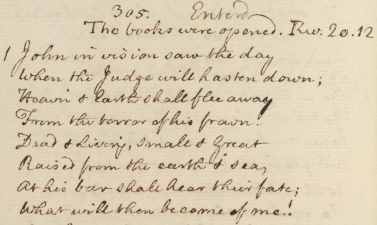 305. Enterd
The books were opened. Rev. 20.12
1 John in vision saw the day
When the Judge will hasten down;
Heav'n & earth shall flee away
From the terror of his frown:
Dead & living, small & great
Raised from the earth & sea,
At his bar shall hear their fate;
What will then become of me!